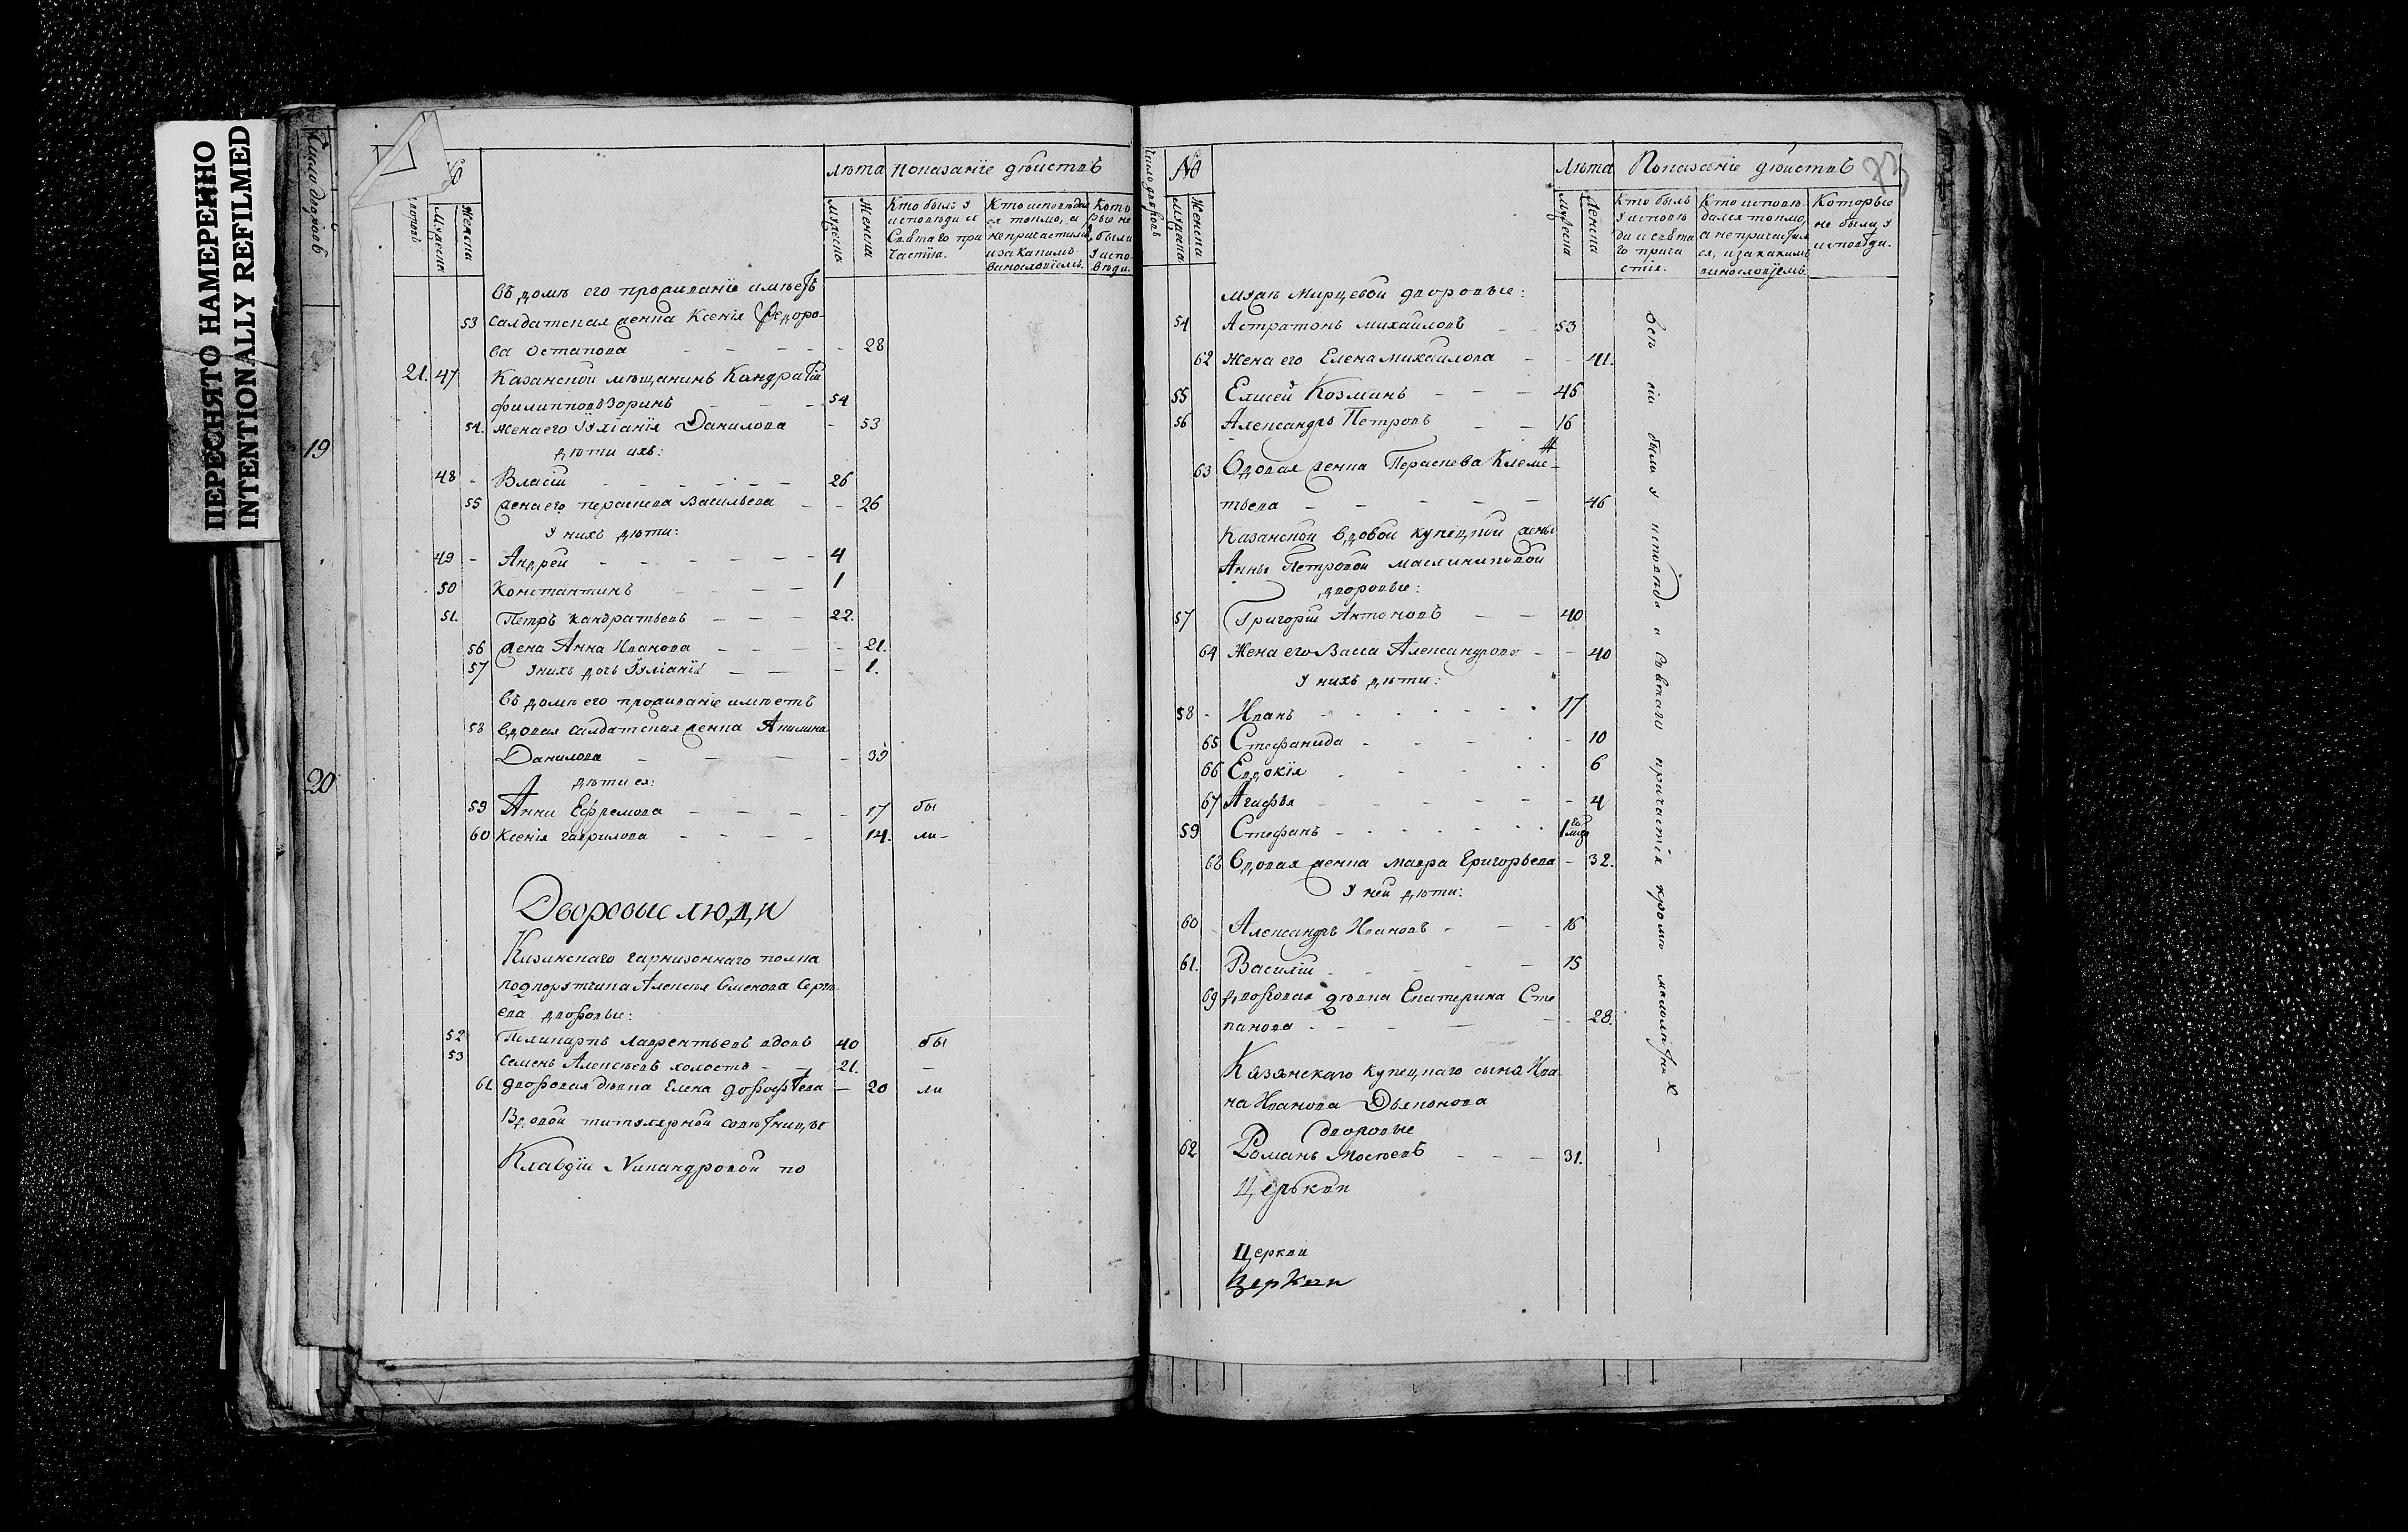 ПЕРЕСНЯТО НАМЕРЕННО
INTENTIONALLY REFILMED
Число дворовъ
19
20
№
Мужеска
Женска
Лѣта
Показаніе дѣйствъ
мужеска
женска
Кто былъ у исповѣди и Святаго причастія.
Кто исповѣдался токмо, а непричастился, и за какимъ винословіемъ.
Которые не были у исповѣди.
въ домѣ его проживаніе имѣетъ
53 салдатская женка Ксенія Ѳедоро-
ва Остапова - 28
21. 47 Казанской мѣщанинъ Кандратій
филипповъ Зоринъ - 54
54. жена его Іуліанія Данилова - 53
дѣти ихъ:
48 - Власій - 26
55 жена его параскева Васильева - 26
У нихъ дѣти:
49 - Андрей - 4
50 Константинъ - 1
51. Петръ кандратьевъ - 22.
56 жена Анна Иванова - 21.
57 У нихъ дочь Іуліанія - 1.
въ домѣ его проживаніе имѣетъ
58 вдовая салдатская женка Акилина
Данилова - 39
дѣти ея:
59 Анна Ефремова - 17 бы
60 Ксенія гаврилова - 14. ли-
Дворовые люди
Казанскаго гарнизоннаго полка
подпорутчика Алексея Семенова Серге-
ева дворовые:
52 Поликарпъ Лаврентьевъ вдовъ 40 бы
53 Семенъ Алексѣевъ холостъ - 21. -
61 дворовая дѣвка Елена дорофѣева - 20 ли
Вдовой титулярной совѣтницы
Клавдіи Никандровой по
Число дворовъ
№
мужеска
Женска
Лѣта
Показаніе дѣйствъ
мужеска
Женска
Кто былъ у исповѣди и святаго причастія.
Кто исповѣдался токмо, а непричастился, и за какимъ винословіемъ.
Которые не были у исповѣди.
мужѣ Мирцевой дворовые:
54 Астратонъ михайловъ - 53
62 Жена его Елена михайлова - 41.
55 Елисей Козминъ - 45
56 Александръ Петровъ - 16
63 Вдовая женка Параскева Клеме-
тьева - 46
Казанской вдовой купецкой жены
Анны Петровой масленниковой
дворовые:
57 Григорій Антоновъ - 40
64 Жена его Васса Александрова - 40
У нихъ дѣти:
58 - Иванъ - 17
65 Стефанида - 10
66 Евдокія - 6
67 Агафья - 4
59 Стефанъ - 1
68 Вдовая женка мавра Григорьева - 32.
У ней дѣти:
60 Александръ Ивановъ - 16
61. Василій - 15
69 дворовая дѣвка Екатерина Сте
панова - 28.
Казанскаго купецкаго сына Ива
на Иванова Дьяконова
дворовые
62 Романъ Мосѣевъ - 31.
Церькви
Церкви
Церкви
Всѣ сіи были у исповѣди и Святаго причастія кромѣ малолѣтныхъ -